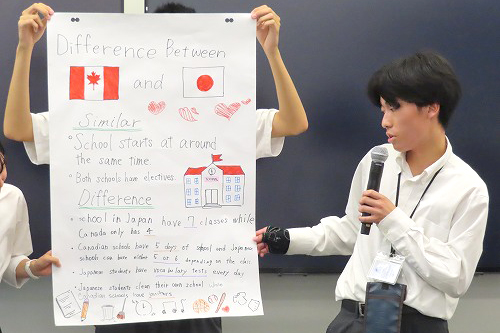 Difference Between
and
Similar
・School starts at around
the same time.
・Both schools have electives.
SCHOOL
Difference
・School in Japan have 7 classes while
Canada only has 4
・Canadian schools have 5 days of school and Japanese
schools can have either 5 or 6 depending on the class
・Japanese students have vocabulary tests every day
・Japanese students clean their own school when
Canadian schools have janitors